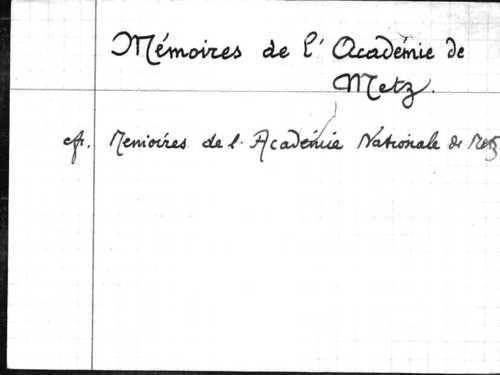 Mémoires de l'Académie de
Metz.
cfr. Memoires de l'Académie Nationale de Metz